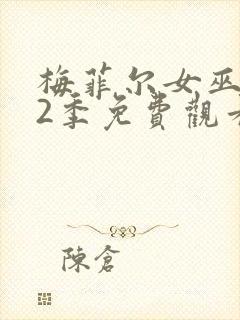 梅菲尔女巫
2季免費觀
陳倉